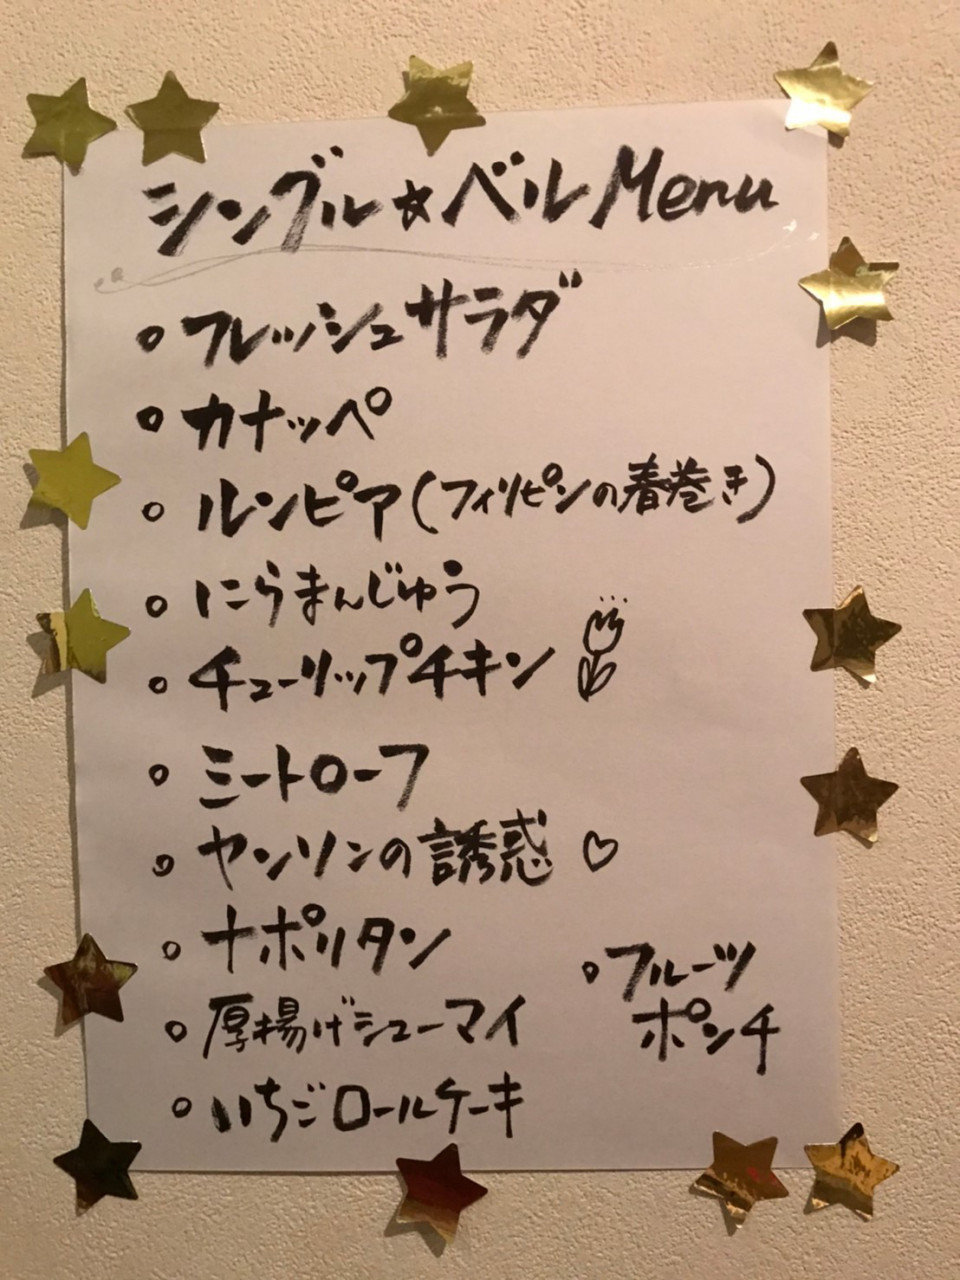 シングル☆ベルMenu
○ フレッシュサラダ
○ カナッペ
○ ルンピア(フィリピンの春巻き)
○ にらまんじゅう
○ チューリップチキン
○ ミートローフ
○ ヤンソンの誘惑 ♡
○ ナポリタン
○ 厚揚げシューマイ
○ いちごロールケーキ
○ フルーツ
ポンチ